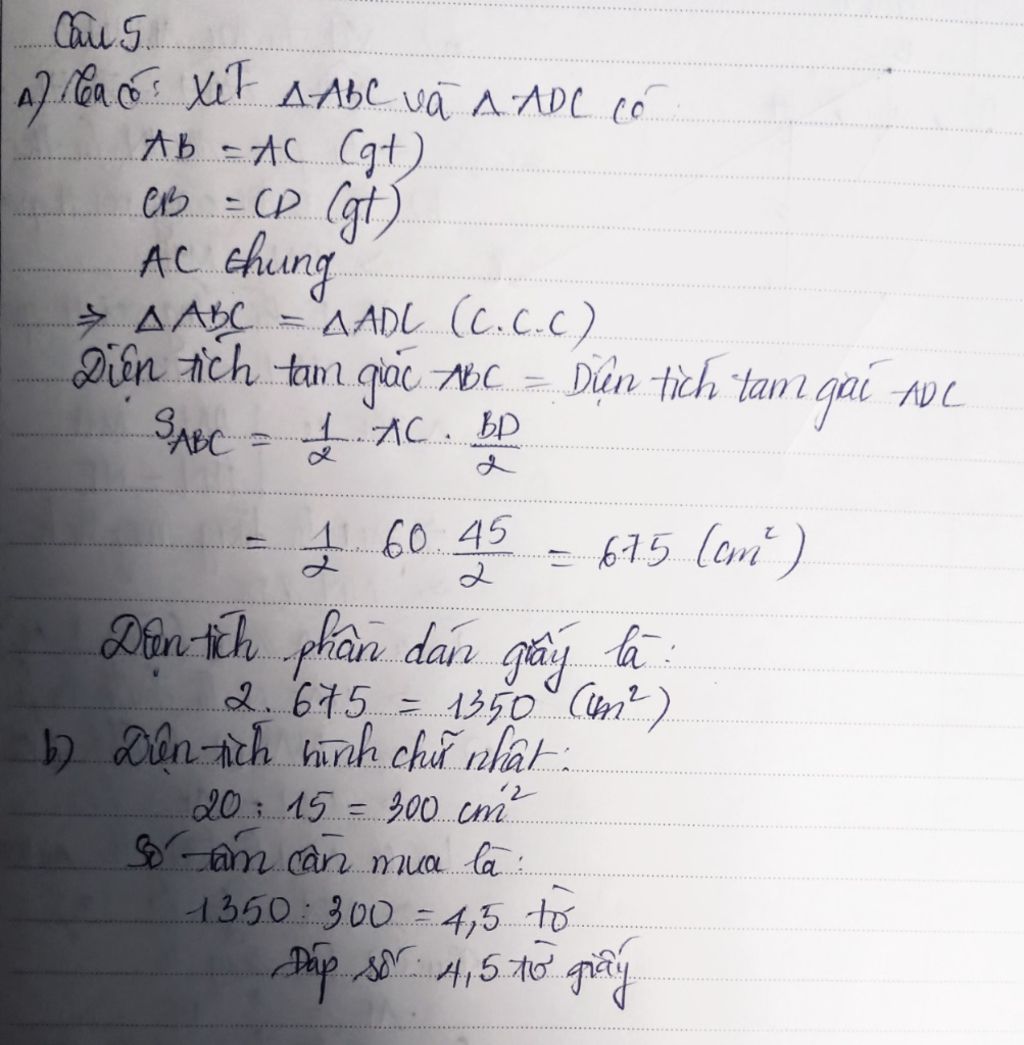 Câu 5.
a) Ta có: Xét Δ ABC và Δ ADC có
AB = AC (gt)
CB = CD (gt)
AC chung
⇒ Δ ABC = Δ ADC (c.c.c)
Diện tích tam giác ABC = Diện tích tam giác ADC
S_ABC = 1/2 . AC . BD/2
= 1/2 . 60 . 45/2 = 675 (cm²)
Diện tích phần dán giấy là:
2. 675 = 1350 (cm²)
b) Diện tích hình chữ nhật:
20 : 15 = 300 cm²
Số tấm cần mua là:
1350 : 300 = 4,5 tờ
Đáp số: 4,5 tờ giấy